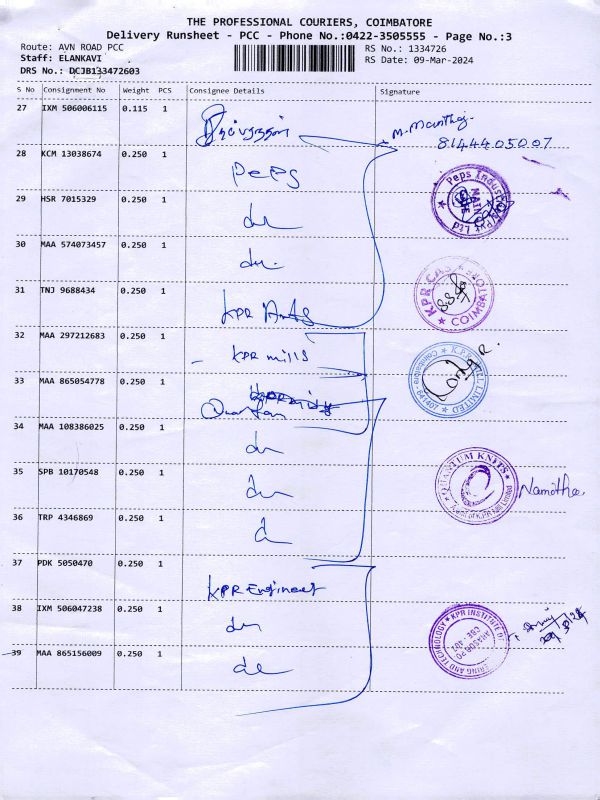 THE PROFESSIONAL COURIERS, COIMBATORE
Delivery Runsheet - PCC - Phone No.:0422-3505555 - Page No.:3
Route: AVN ROAD PCC
RS No.: 1334726
Staff: ELANKAVI
RS Date: 09-Mar-2024
DRS No.: DCJB133472603
S No Consignment No Weight PCS Consignee Details Signature
27 IXM 506006115 0.115 1
81444.05007
28 KCM 13038674 0.250 1 Peps
29 HSR 7015329 0.250 1 du
30 MAA 574073457 0.250 1 du.
31 TNJ 9688434 0.250 1 KPR
32 MAA 297212683 0.250 1 KPR mills
33 MAA 865054778 0.250 1
34 MAA 108386025 0.250 1 du
35 SPB 10170548 0.250 1 du
36 TRP 4346869 0.250 1
37 PDK 5050470 0.250 1 KPR Engineer
38 IXM 506047238 0.250 1 du
39 MAA 865156009 0.250 1
Peps Industries Pvt Ltd
KPR
COIMBATORE
K.P.R. MILL LIMITED
Coimbatore - 641407
QUANTUM KNITS
Namitha.
KPR INSTITUTE OF
ERING AND TECHNOLOGY